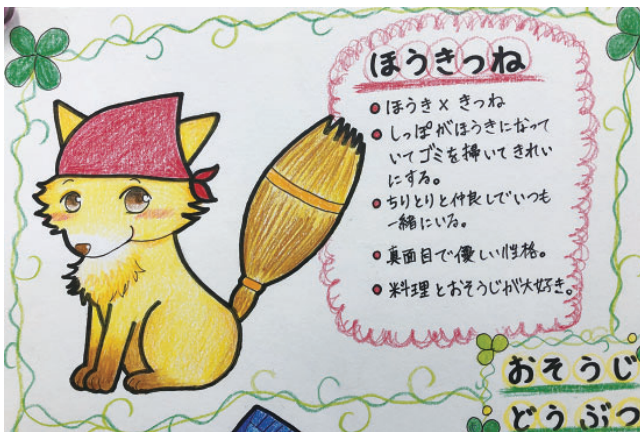 ほうきつね
●ほうき×きつね
●しっぽがほうきになって
いてゴミを掃いてきれい
にする。
●ちりとりと仲良しでいつも
一緒にいる。
●真面目で優しい性格。
●料理とおそうじが大好き。
おそうじ
どうぶつ